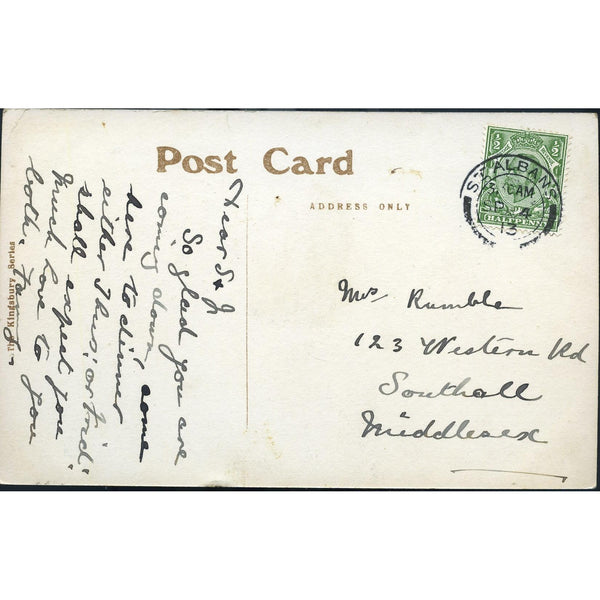 Post Card
ADDRESS ONLY
The Kingsbury Series
Dear S & J
So glad you are
coming down, come
here to dinner
either Thurs, or Frid:
shall expect you
Much love to you
both.
Mrs Rumble
123 Western Rd
Southall
Middlesex
ST ALBANS
AM
SP 4
13
½ ½
HALFPENNY